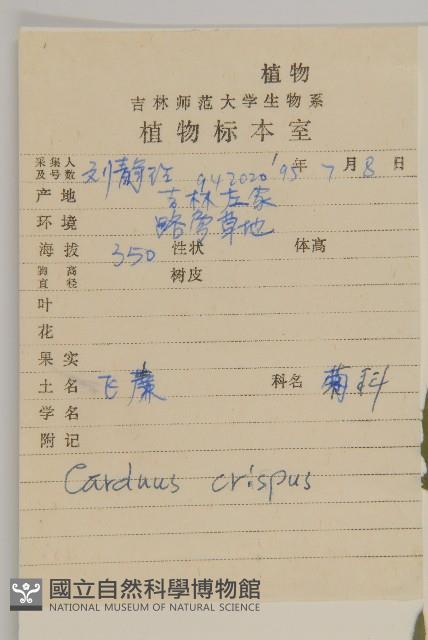 植物
吉林师范大学生物系
植物标本室
采集人及号数 刘静玲 942020 '95年 7月 8日
产地 吉林左家
环境 路旁草地
海拔 350 性状 体高
胸高直径 树皮
叶
花
果实
土名 飞廉 科名 菊科
学名
附记
Carduus crispus
國立自然科學博物館
NATIONAL MUSEUM OF NATURAL SCIENCE